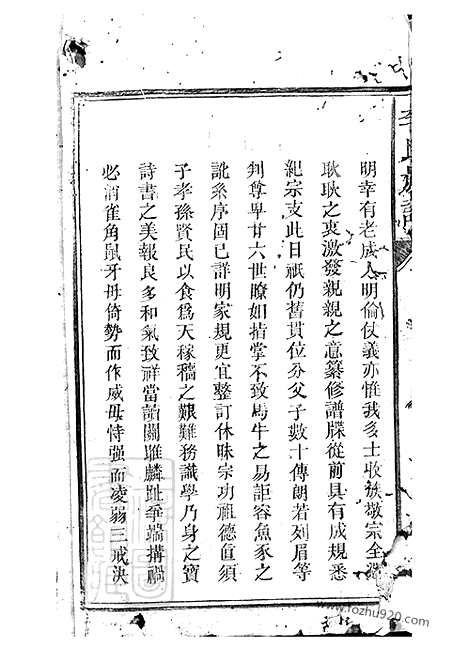 李氏族譜
明幸有老成人明倫仗義亦惟我多士收族敬宗全
耿耿之衷激發親親之意纂修譜牒從前具有成規悉
紀宗支此日祇仍舊貫位分父子數十傳朗若列眉等
判尊卑廿六世瞭如指掌不致馬牛之易詎容魚豕之
訛系序固已詳明家規更宜整訂休昧宗功祖德直須
子孝孫賢民以食為天稼穡之艱難務識學乃身之寶
詩書之美報良多和氣致祥當詣關雎麟趾爭端搆禍
必消雀角鼠牙毋倚勢而作威毋恃强而凌弱三戒決
www.fozhu920.com